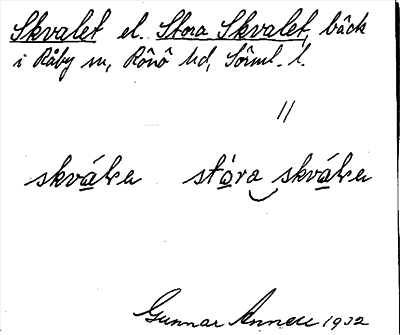 Skvalet el. Stora Skvalet, bäck
i Råby sn, Rönö hd, Sörml. l.
//
skválea stóra skválea
Gunnar Annell 1932